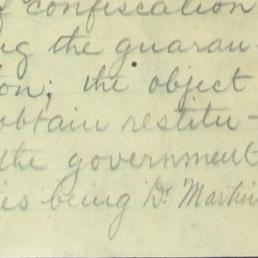 of confiscation
ng the guaran-
tion; the object
obtain restitu-
the government
ies being Dr. Martin